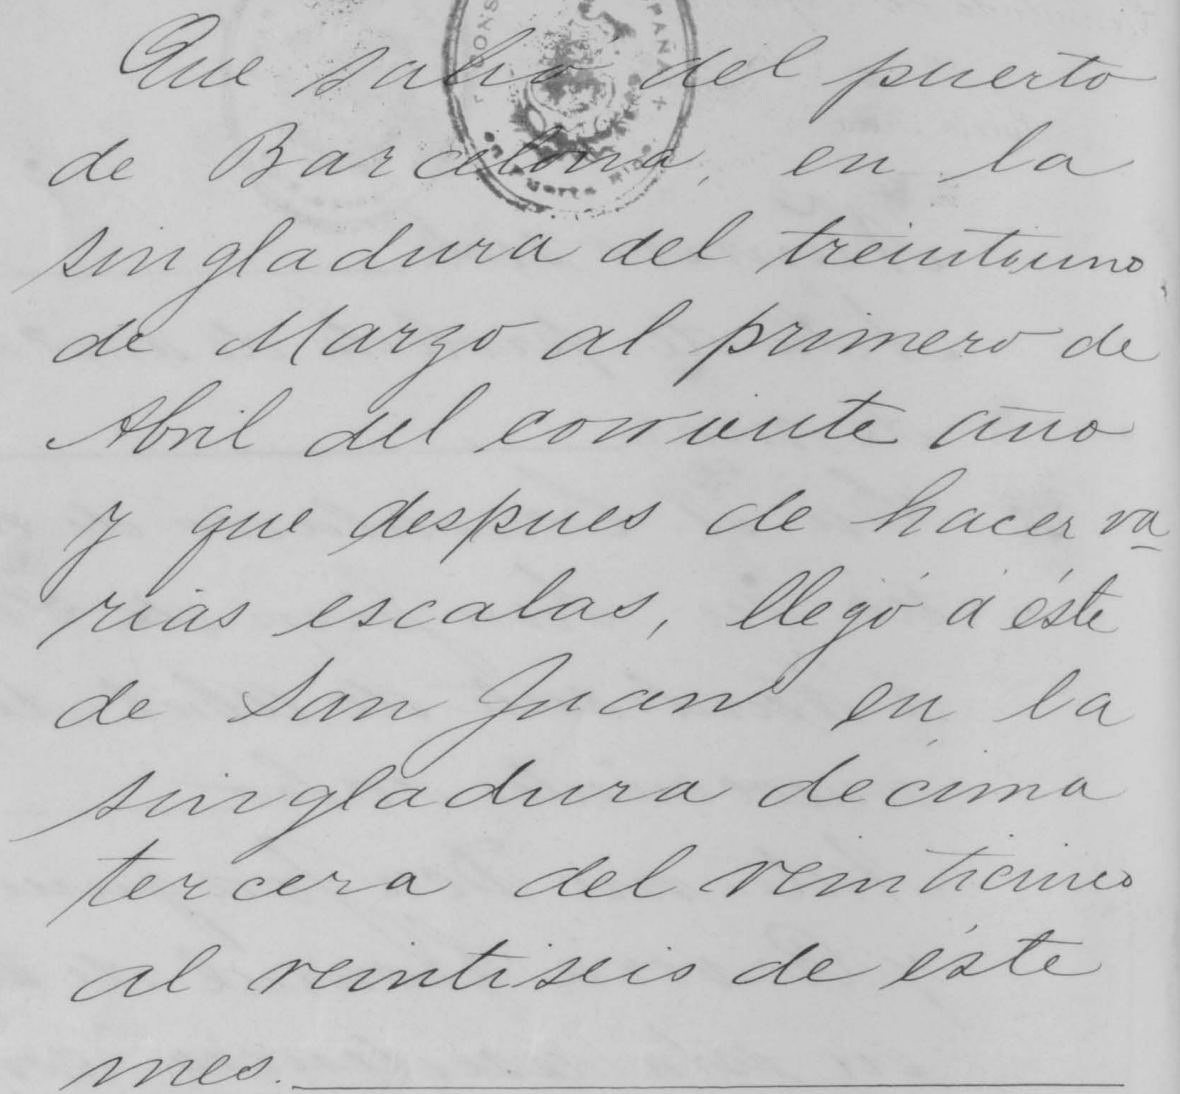 CONS PAÑA
Puerto Rico
Que salió del puerto
de Barcelona, en la
singladura del treintiuno
de Marzo al primero de
Abril del corriente año
y que despues de hacer va-
rias escalas, llegó á éste
de San Juan en la
singladura décima
tercera del veinticinco
al veintiseis de éste
mes.